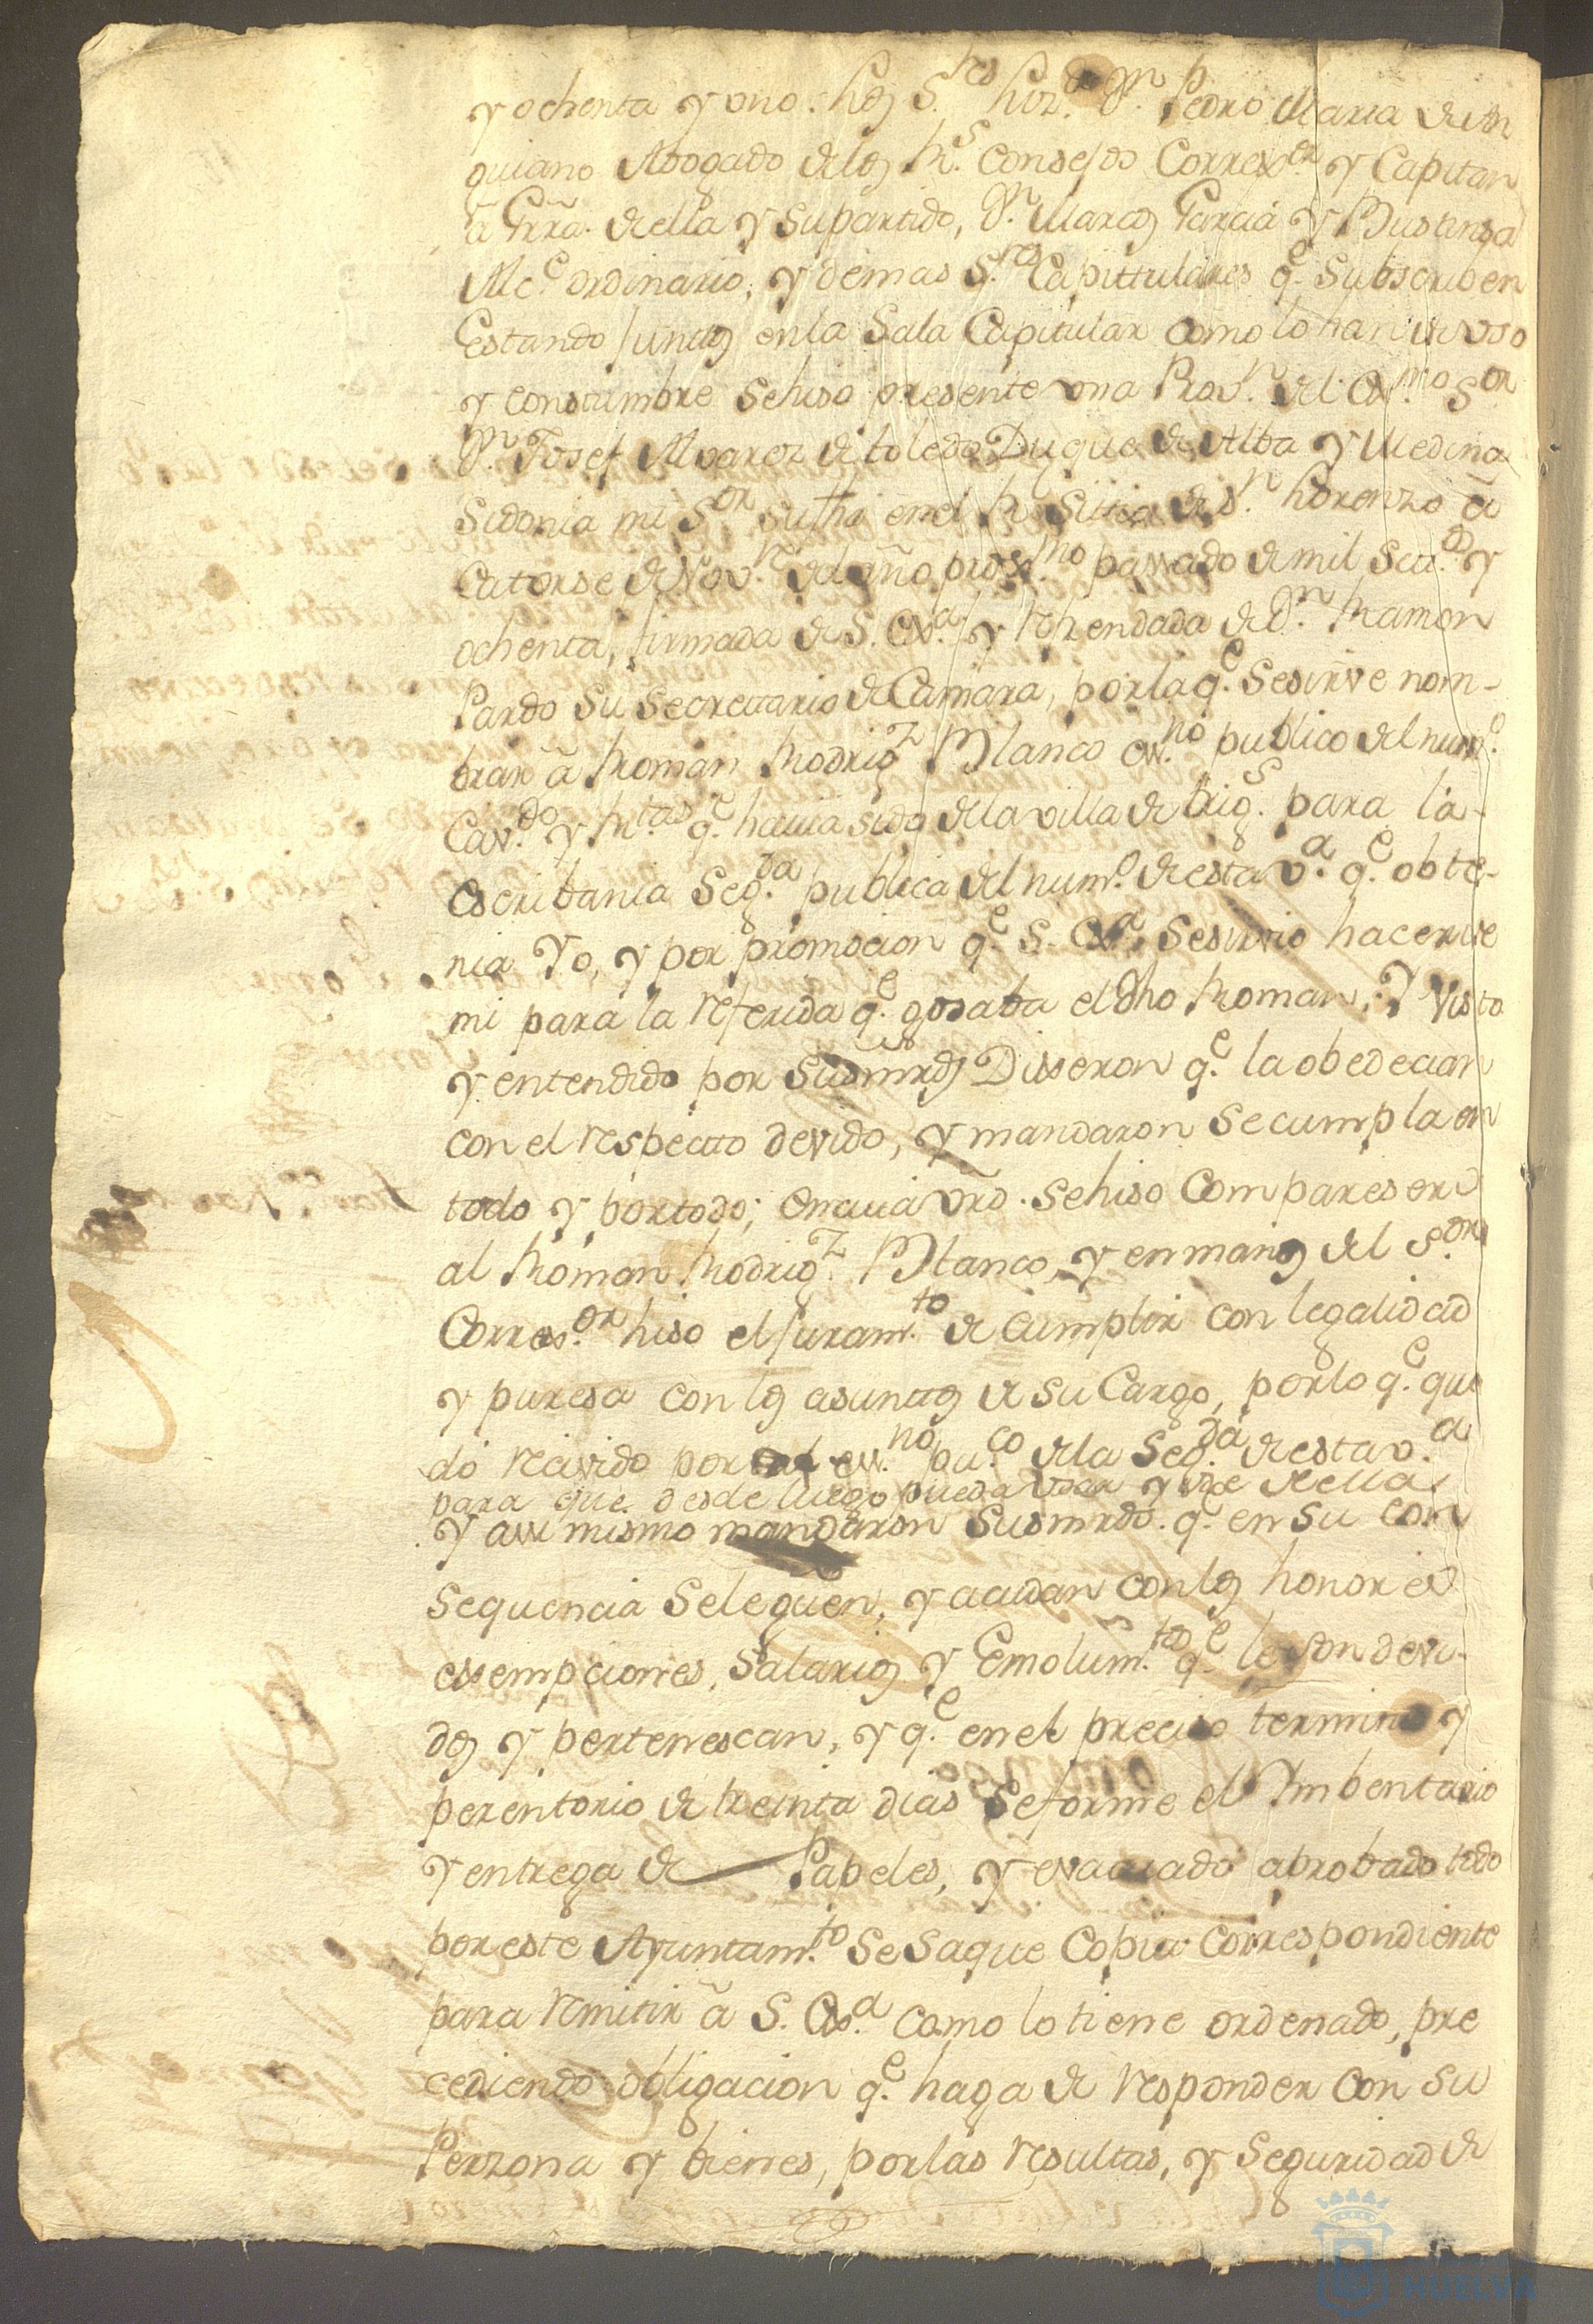 y ochenta y uno. los S.res Liz.do D.n Pedro Maria de An
guiano Abogado delos R.s Consejos Correx.or y Capitan
â Grrã. de ella y supartido, D.n Marcos Garcia y Bustansa
Alc.e ordinario, y demas S.res Capittulares q.e subscriben
Estando juntos enla Sala Capitular como lo han de uso
y constumbre sehiso presente una Prov.n del Ex.mo S.or
D.n Josef Alvarez de toledo Duque de Alba y Medina
Sidonia mi S.or su fha en el R.l Sitio de S.n Lorenzo â
Catorse de Nov.re del año prox.mo passado de mil Set.os y
ochenta, firmada de S. Ex.a y refrendada de D.n Ramon
Pardo su secrettario de Camara, por la q.e Sesirve nom-
brar â Roman Rodrig.z Blanco ess.no publico del num.o
Cav.do y R.tas q.e havia sido dela villa de Trig.s para la
escribania Seg.da publica del num.o de esta v.a q.e obte-
nia Yo, y por promocion q.e S. Ex.a Sesirvio hacer de
mi para la referida q.e gosaba el dho Roman; Y Visto
y entendido por Susmrds Dixeron q.e la obedecian
con el respecto devido, y mandaron se cumpla en
todo y portodo; En cuia vrd. sehiso Compareser
al Roman Rodrig.z Blanco, y en manos del S.or
Corres.or hiso el juram.to de cumplir con legalidad
y puresa con los asuntos de su Cargo, por lo q.e que
dó recivido por tal ess.no pu.co dela Seg.da de esta v.a
para que desde luego pueda usar y use de ella,
y assi mismo mandaron Susmrds. q.e en su con
sequencia Seleguen, y acudan con los honores
essempciones, Salarios y Emolum.tos q.e le son devi-
dos y pertenescan, y q.e en el preciso termino y
perentorio de treinta dias Seforme el Imbentario
y entrega de Papeles, y evacuado aprobado todo
por este Ayuntam.to Se Saque Copia Correspondiente
para remitir â S. Ex.a como lo tiene ordenado, pre
cediendo obligacion q.e haga de responder con su
Perzona y bienes, por las resultas, y Seguridad de
HUELVA